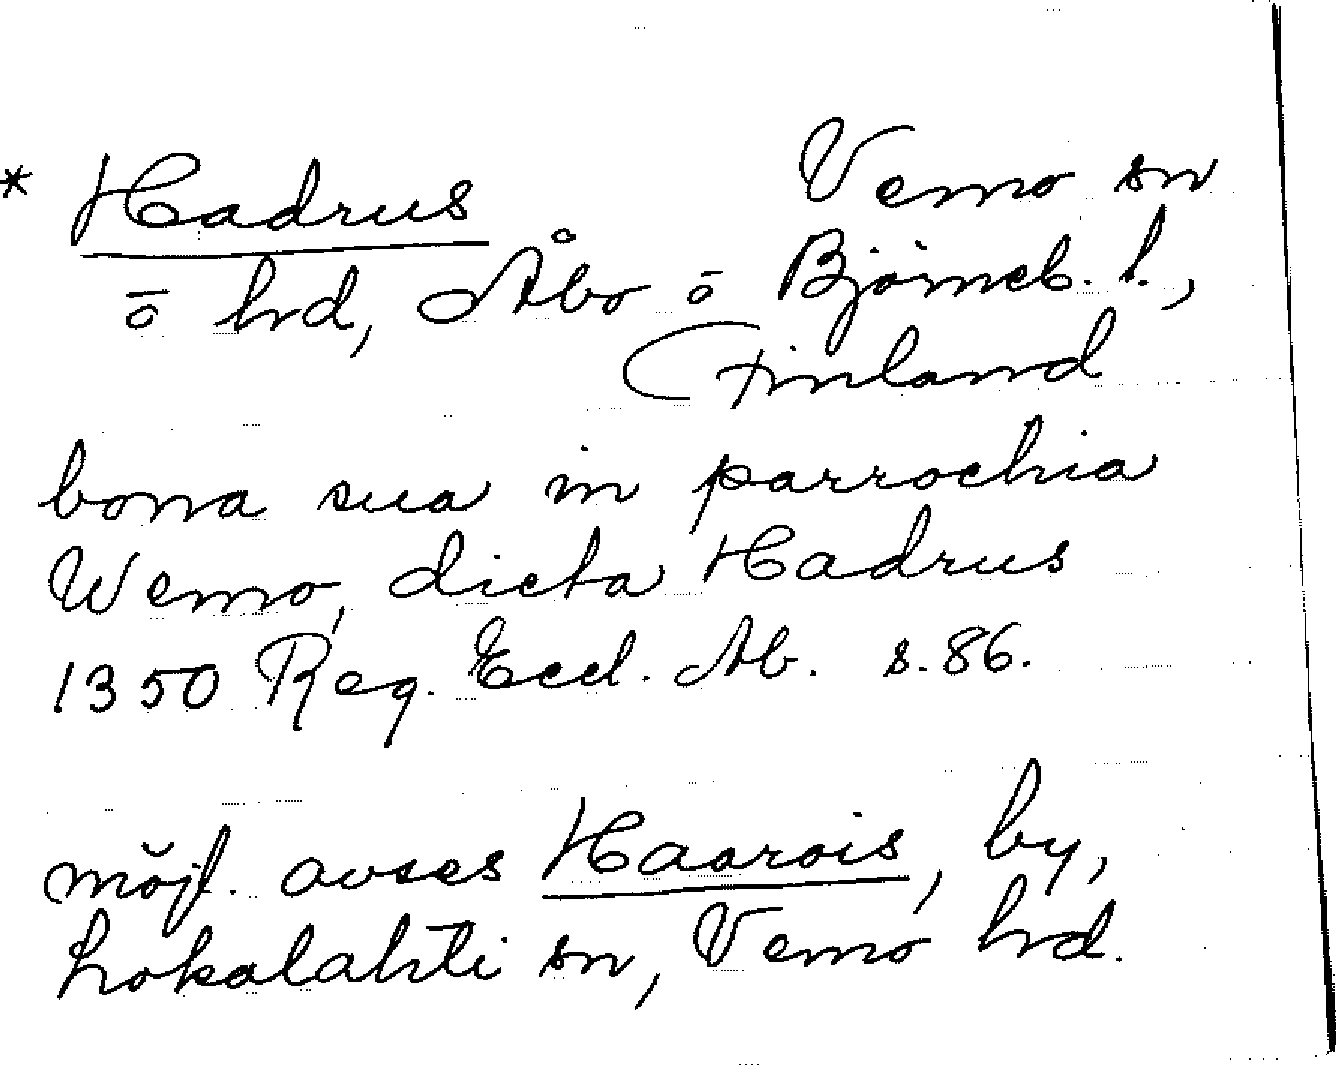 * Hadrus Vemo sn
o hrd, Åbo o Björneb. l.,
Finland
bona sua in parrochia
Wemo, dicta Hadrus
1350 Reg. Eccl. Ab. s. 86.
möjl. avses Haarois, by,
Lokalahti sn, Vemo hrd.